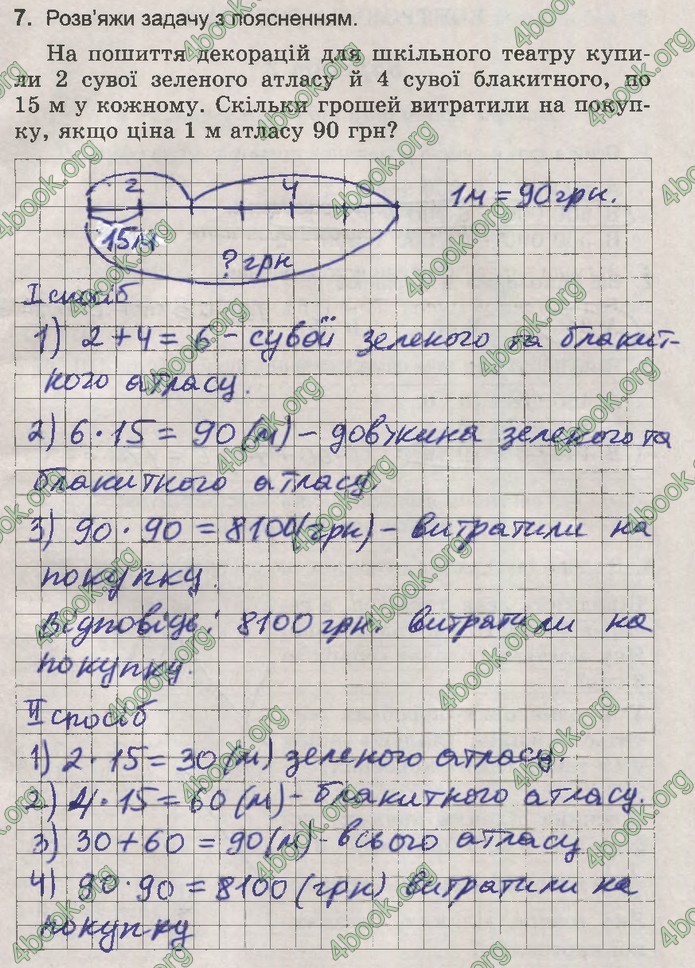 7. Розв'яжи задачу з поясненням.
На пошиття декорацій для шкільного театру купи-
ли 2 сувої зеленого атласу й 4 сувої блакитного, по
15 м у кожному. Скільки грошей витратили на покуп-
ку, якщо ціна 1 м атласу 90 грн?
2 4 1м = 90 грн.
15м
? грн
I спосіб
1) 2 + 4 = 6 - сувої зеленого та блакит-
ного атласу.
2) 6 · 15 = 90 (м) - довжина зеленого та
блакитного атласу.
3) 90 · 90 = 8100 (грн) - витратили на
покупку.
Відповідь: 8100 грн. витратили на
покупку.
II спосіб
1) 2 · 15 = 30 (м) зеленого атласу.
2) 4 · 15 = 60 (м) - блакитного атласу.
3) 30 + 60 = 90 (м) - всього атласу
4) 90 · 90 = 8100 (грн) витратили на
покупку
4book.org